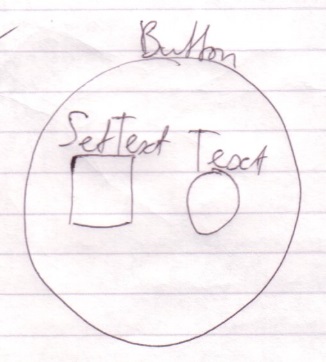 Button
SetText Text